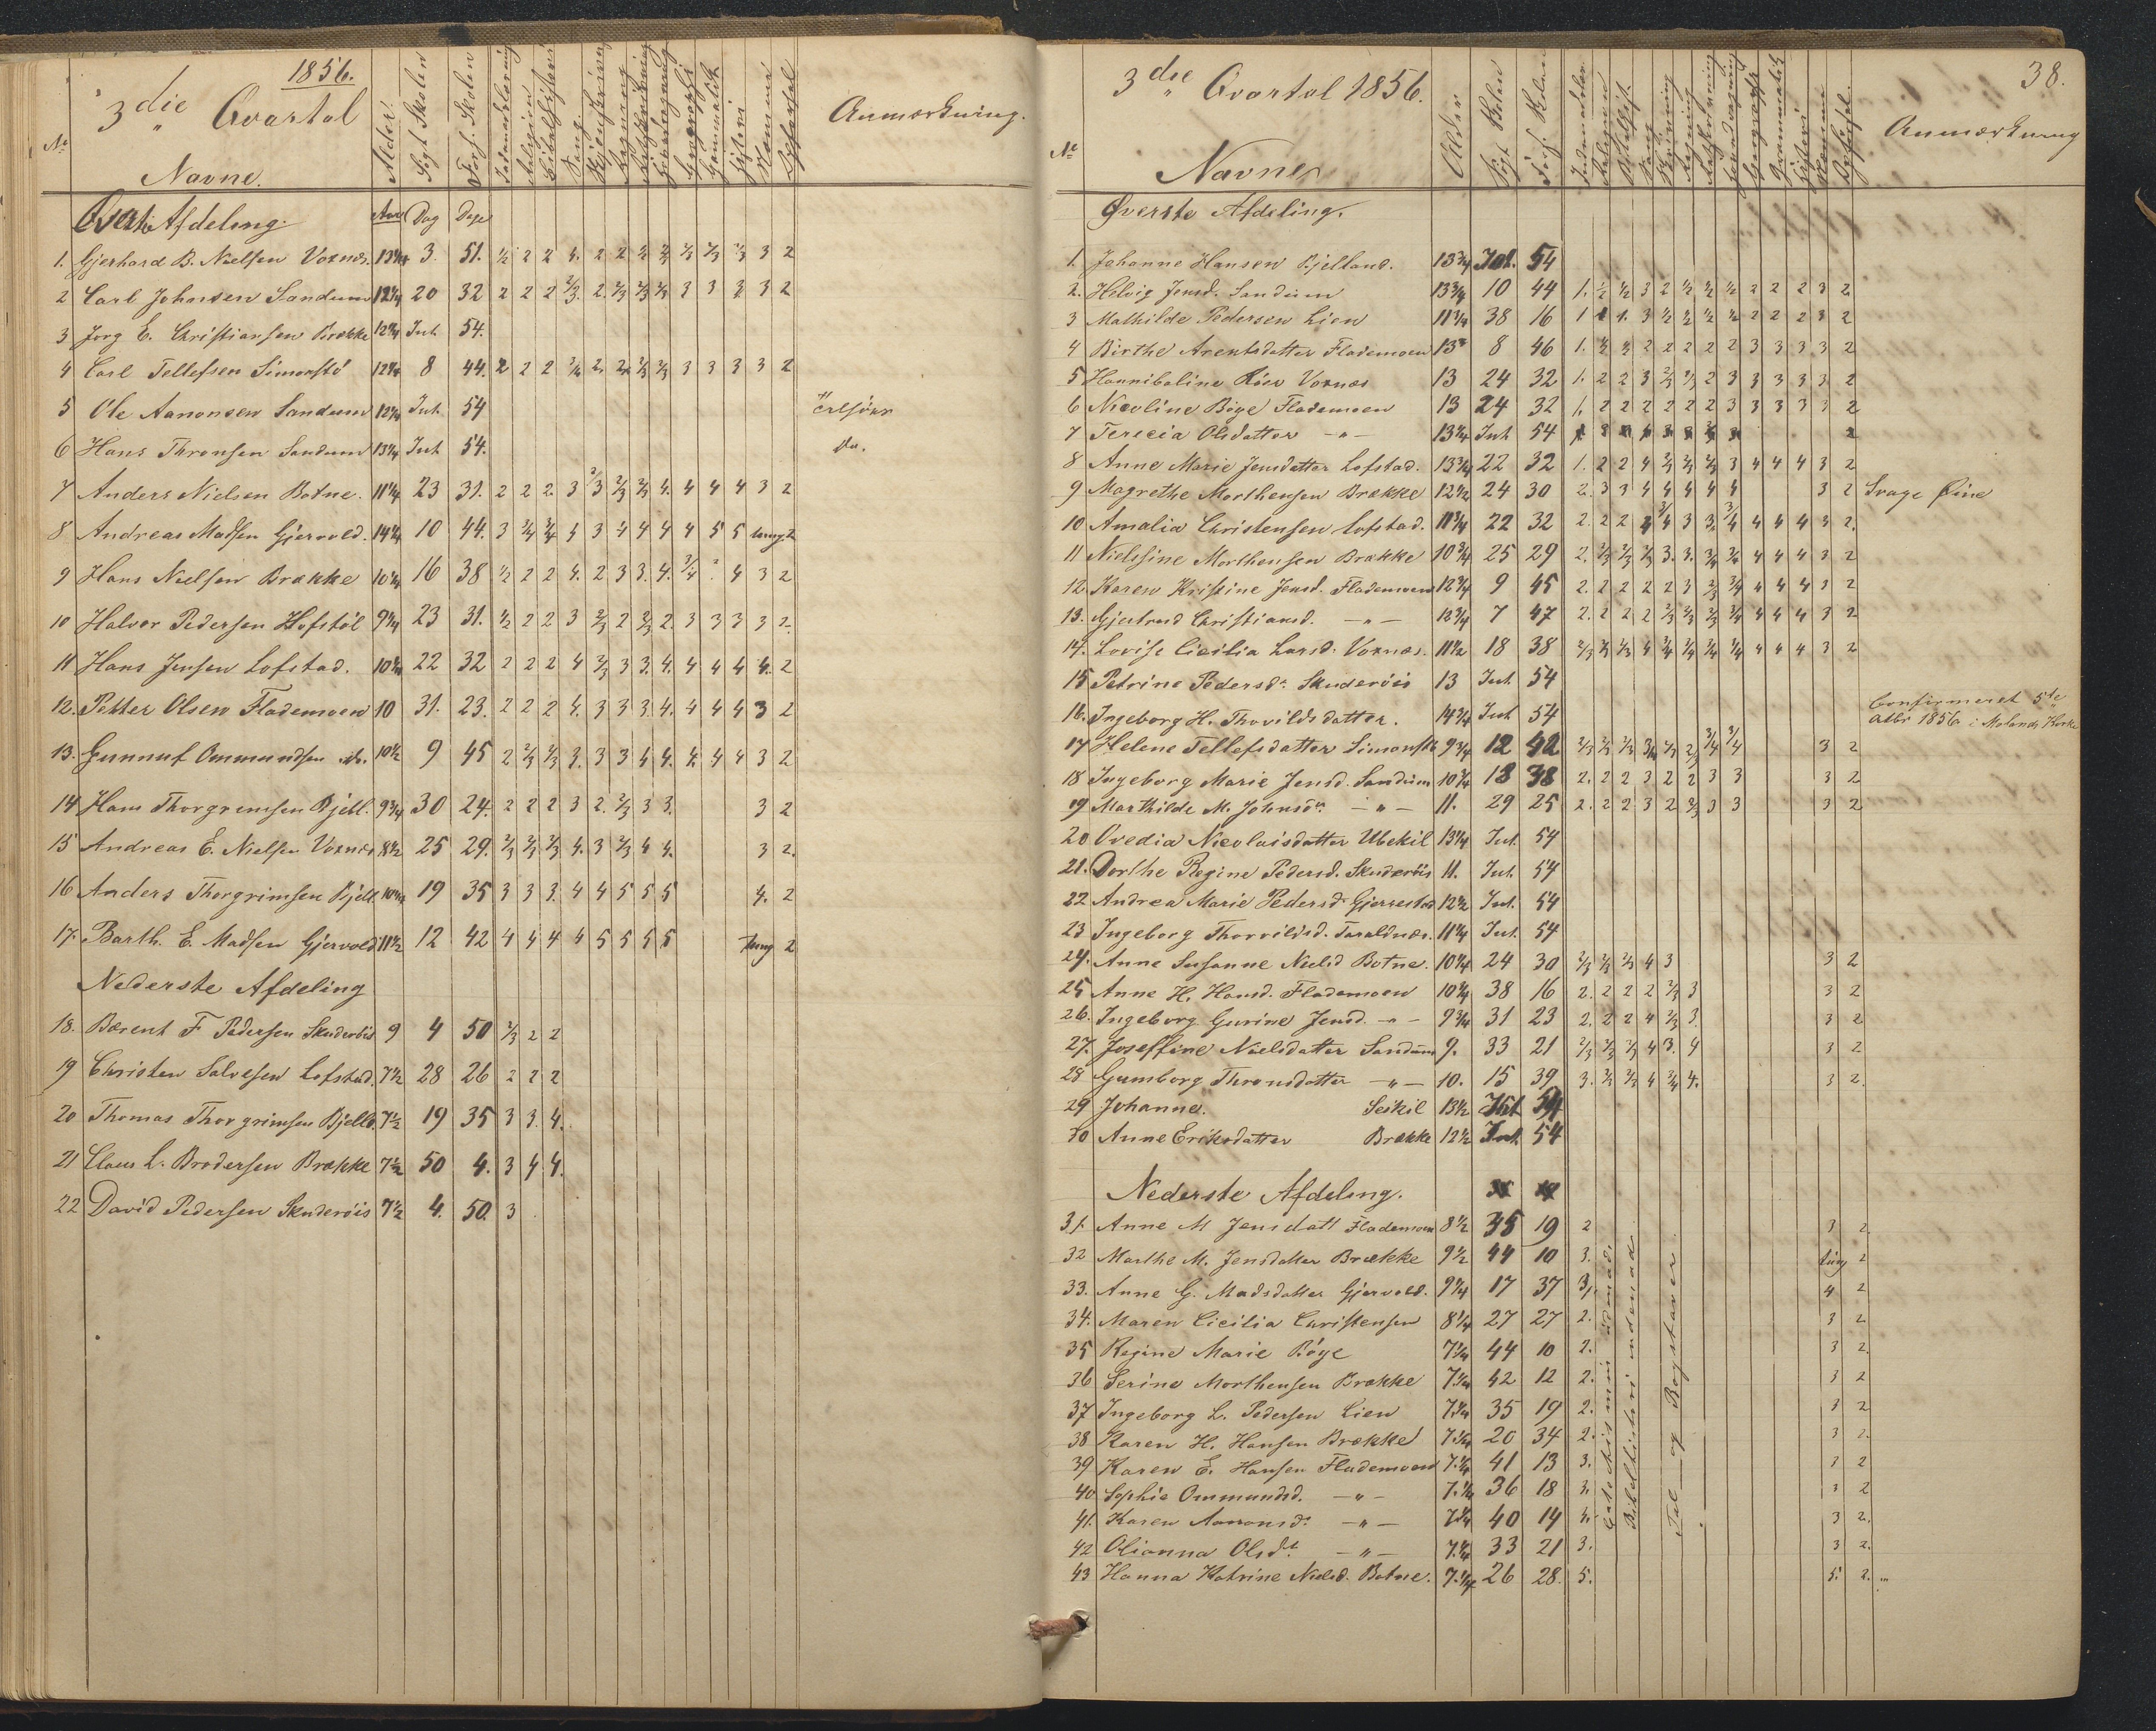 1856.
3die Qvartal
No
Navne.
Alder
Sögt Skolen
Fors. Skolen
Anmærkning.
Øverste Afdeling.
Aar Dag Dage
1. Gjerhard B. Nielsen Voxnæs. 13 3/4 3. 51. 1/2 2 2 4. 2 2 3 2
2 Carl Johnsen Sandum 12 1/4 20 32 2 2 2 2/3. 2. 2/3 2/3 2/3 3 3 3. 3 2
3 Jörg E. Christiansen Brække 12 3/4 Int. 54.
4 Carl Tellefsen Simonstö 12 3/4 8 44. 2 2 2 2. 3 3 3 3 2
5 Ole Aanonsen Sandum 12 3/4 Int. 54
6 Hans Thronsen Sandum 13 1/4 Int 54. do.
7 Anders Nielsen Botne. 11 1/4 23 31. 2 2 2. 3 2/3 2/3 2/3 4. 4 4 4 3 2
8 Andreas Madsen Gjervold. 14 1/4 10 44. 3 3/4 3/4 5 3 4 4 4 4 5 5 tung 2
9 Hans Nielsen Brække 10 1/4 16 38 1/2 2 2 4. 2 3 3. 4. 3/4 4 3 2
10 Halvor Pedersen Hofstöl 9 3/4 23 31. 1/2 2 2 3 2/3 2 2/3 2. 3 3 3 3 2.
11 Hans Jensen Lofstad. 10 3/4 22 32 2 2 2 4 2/3 3 3. 4. 4 4 4 4. 2
12. Petter Olsen Flademoen 10 31. 23. 2 2 2 4. 3 3 3. 4. 4 4 4 3 2
13. Gunnuf Ommundsen do. 10 1/2 9 45 2 2/3 2/3 3. 3 3 4 4. 4. 4 4 3 2
14 Hans Thorgrimsen Bjell. 9 3/4 30 24. 2 2 2 3 2. 2/3 3 3. 3 2
15 Andreas E. Nielsen Voxnæs 8 1/2 25 29. 2/3 2/3 2/3 4. 3 2/3 4 4. 3 2.
16 Anders Thorgrimsen Bjell. 10 3/4 19 35 3 3 3. 4 4 5 5 5 4. 2
17. Barth. E. Madsen Gjervold 11 1/2 12 42 4 4 4 4 5 5 5 5 tung 2
Nederste Afdeling
18. Bærent F Pedersen Skuderöis 9 4 50 2/3 2 2
19 Christen Salvesen Lofstad. 7 1/2 28 26 2 2 2
20 Thomas Thorgrimsen Bjell. 7 1/2 19 35 3 3. 4.
21 Claus L. Brodersen Brække 7 1/2 50 4. 3 4 4.
22 David Pedersen Skuderöis 7 1/2 4. 50. 3
38.
3die Qvartal 1856.
No
Navne
Alder
Sögt Skolen
Fors. Skolen
Anmærkning
Øverste Afdeling.
1. Johanne Hansen Bjelland. 13 3/4 Int. 54
2. Helvig Jensd. Sandum 13 3/4 10 44 1. 1/2 1/2 3 2 1/2 1/2 1/2 2 2 2 3 2
3 Mathilde Pedersen Lien 11 3/4 38 16 1 1 1. 3 1/2 1/2 1/2 1/2 2 2 2 3 2
4 Birthe Arentsdatter Flademoen 8 46 1. 2 2 2 2 2 3 3 3 3 2
5 Hannibaline Röer Voxnæs 13 24 32 1. 2 2 3 2/3 2/3 2 3 3 3 3 3. 2
6 Nicoline Böye Flademoen 13 24 32 1. 2 2 2 2 2 2 3 3 3 3 3 2
7 Terecia Olsdatter — " — 13 3/4 Int 54 2
8 Anne Marie Jensdatter Lofstad. 13 3/4 22 32 1. 2 2 4 2/3 2/3 2/3 3 4 4 4 3 2
9 Magrethe Morthensen Brække 12 1/2 24 30 2. 3 3 4 4 4 4 4 3 2 Svage Øine
10 Amalia Christensen Lofstad. 11 3/4 22 32 2. 2 2 3 3. 3/4 4 4 4 3 2.
11 Nielsine Morthensen Brække 10 3/4 25 29 2. 2/3 2/3 2/3 3. 3. 3/4 3/4 4 4 4 3 2
12. Karen Kristine Jensd. Flademoen 12 3/4 9 45 2. 2 2 2 2 3 2/3 3/4 4 4 4 3 2
13. Gjertrud Christiansd. — " — 12 3/4 7 47 2. 2 2 2 2/3 2/3 2/3 3/4 4 4 4 3 2
14. Lovise Cicilia Larsd. Voxnæs. 11 1/2 18 38 2/3 2/3 2/3 4 3/4 3/4 3/4 3/4 4 4 4 3 2
15 Petrine Pedersd. Skuderöis 13 Int. 54
16. Ingeborg H. Thovildsdatter. 14 3/4 Int 54
Confirmeret 5te
Octbr 1856 i Molands Kirke
17 Helene Tellefsdatter Simonstö 9 3/4 12 42 2/3 2/3 2/3 3/4 2/3 2/3 3/4 3/4 3 2
18 Ingeborg Marie Jensd. Sandum 10 3/4 18 38 2. 2 2 3 2 2 3 3 3 2
19 Marthilde M. Johnsdr. — " — 11. 29 25 2. 2 2 3 2 2/3 3 3 3 2
20 Ovedia Nicolaisdatter Ubekil 13 1/4 Int. 54
21. Dorthe Regine Pedersd. Skuderöis 11. Int. 54
22 Andrea Marie Pedersd. Gjerrestad 12 1/2 Int. 54
23 Ingeborg Thorvildsd. Taraldnæs. 11 1/4 Int. 54
24. Anne Susanne Nielsd Botne. 10 3/4 24 30 2/3 2/3 2/3 4 3 3 2
25 Anne H. Hansd. Flademoen 10 3/4 38 16 2. 2 2 2 2/3 3 3 2
26. Ingeborg Gurine Jensd. — " — 9 3/4 31 23 2. 2 2 4 2/3 3. 3 2
27. Joseffine Nielsdatter Sandum 9. 33 21 2/3 2/3 2/3 4 3. 4 3 2
28 Gumborg Thronsdatter — " — 10. 15 39 3. 2/3 2/3 4 3/4 4. 3 2.
29 Johanne. Seikil 13 1/2 Int 54
30 Anne Eriksdatter Brække 12 1/2 Int. 54
Nederste Afdeling.
31. Anne M Jensdatt Flademoen 8 1/2 35 19 2 3 2
32 Marthe M. Jensdatter Brække 9 1/2 44 10 3. tung 2
33. Anne G. Madsdatter Gjervold. 9 3/4 17 37 3. 4 2
34. Maren Cicilia Christensen 8 1/4 27 27 2. 3 2
35 Regine Marie Böye 7 3/4 44 10 2. 3 2.
36 Serine Morthensen Brække 7 3/4 42 12 2. 3 2
37 Ingeborg L. Pedersen Lien 7 3/4 35 19 2. 3 2
38 Karen H. Hansen Brække 7 1/4 20 34 2. 3 2.
39 Karen E. Hansen Flademoen 7 1/4 41 13 3. 3 2
40 Sophie Ommundsd. — " — 7 1/4 36 18 3. 3 2
41. Karen Aanonsd. — " — 7 1/4 40 14 3. 3 2.
42 Olianna Olsdt. — " — 7 1/4 33 21 3. 3 2.
43 Hanna Katrine Nielsd. Botne. 7 1/4 26 28. 5. 5. 2.
Catechismus udenad.
Bibelhistori udenad
Tal og Bogstaver